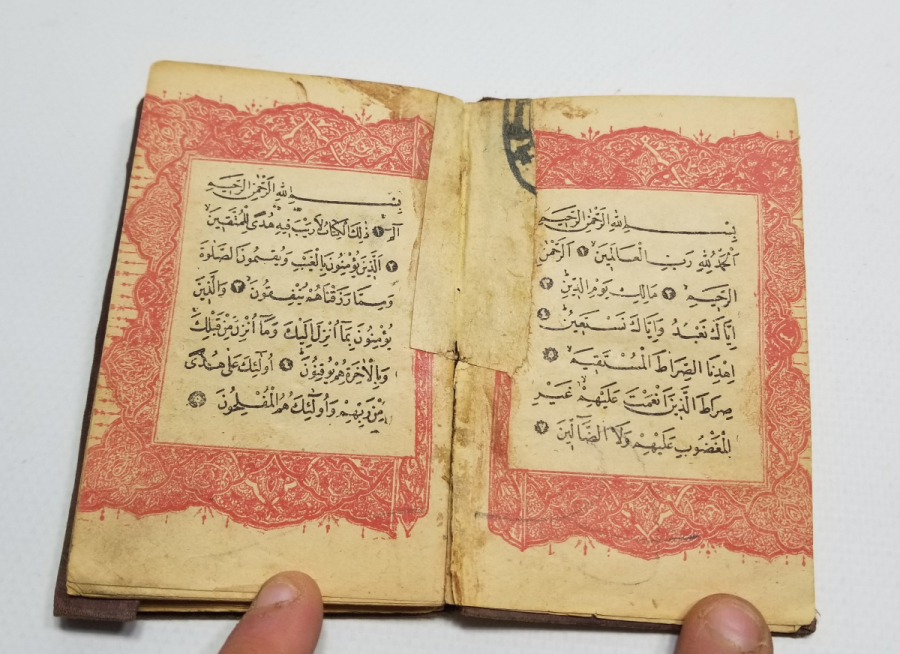 بِسْمِ اللهِ الرَّحْمٰنِ الرَّحِيمِ
اَلْحَمْدُ لِلّٰهِ رَبِّ الْعَالَمِينَ ١ اَلرَّحْمٰنِ
الرَّحِيمِ ٢ مَالِكِ يَوْمِ الدِّينِ ٣
اِيَّاكَ نَعْبُدُ وَاِيَّاكَ نَسْتَعِينُ ٤
اِهْدِنَا الصِّرَاطَ الْمُسْتَقِيمَ ٥
صِرَاطَ الَّذِينَ اَنْعَمْتَ عَلَيْهِمْ غَيْرِ
الْمَغْضُوبِ عَلَيْهِمْ وَلَا الضَّالِّينَ ٧
بِسْمِ اللهِ الرَّحْمٰنِ الرَّحِيمِ
الٓمٓ ١ ذٰلِكَ الْكِتَابُ لَارَيْبَ فِيهِ هُدًى لِلْمُتَّقِينَ
٢ اَلَّذِينَ يُؤْمِنُونَ بِالْغَيْبِ وَيُقِيمُونَ الصَّلٰوةَ
وَمِمَّا رَزَقْنَاهُمْ يُنْفِقُونَ ٣ وَالَّذِينَ
يُؤْمِنُونَ بِمَٓا اُنْزِلَ اِلَيْكَ وَمَٓا اُنْزِلَ مِنْ قَبْلِكَ
وَبِالْاٰخِرَةِ هُمْ يُوقِنُونَ ٤ اُولٰٓئِكَ عَلٰى هُدًى
مِنْ رَبِّهِمْ وَاُولٰٓئِكَ هُمُ الْمُفْلِحُونَ ٥